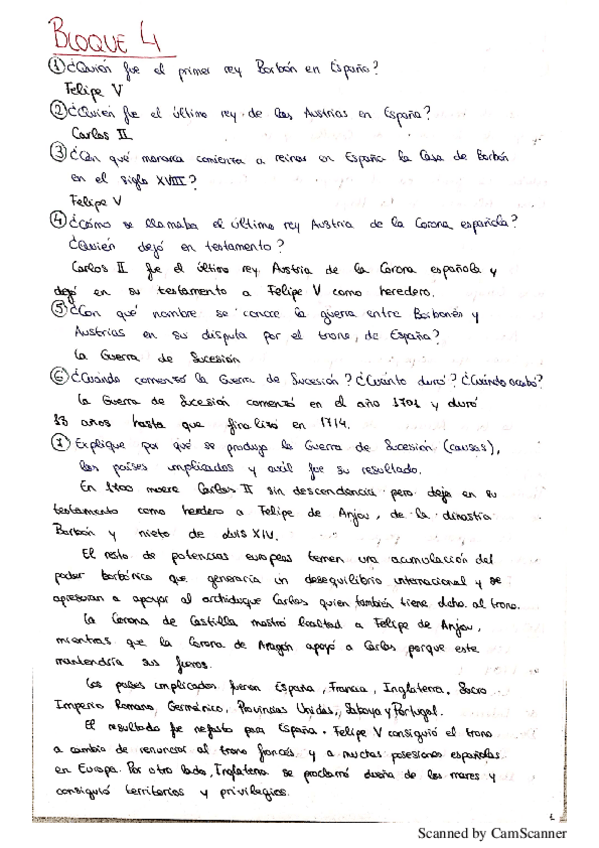 BLOQUE 4
① ¿Quién fue el primer rey Borbón en España?
Felipe V
② ¿Quién fue el último rey de los Austrias en España?
Carlos II
③ ¿Con qué monarca comienza a reinar en España la Casa de Borbón
en el siglo XVIII?
Felipe V
④ ¿Cómo se llamaba el último rey Austria de la Corona española?
¿Quién dejó en testamento?
Carlos II fue el último rey Austria de la Corona española y
dejó en su testamento a Felipe V como heredero.
⑤ ¿Con qué nombre se conoce la guerra entre Borbones y
Austrias en su disputa por el trono de España?
La Guerra de Sucesión
⑥ ¿Cuándo comenzó la Guerra de Sucesión? ¿Cuánto duró? ¿Cuándo acabó?
La Guerra de Sucesión comenzó en el año 1701 y duró
13 años hasta que finalizó en 1714.
⑦ Explique por qué se produjo la Guerra de Sucesión (causas),
los países implicados y cuál fue su resultado.
En 1700 muere Carlos II sin descendencia pero deja en su
testamento como heredero a Felipe de Anjou, de la dinastía
Borbón y nieto de Luis XIV.
El resto de potencias europeas temen una acumulación del
poder borbónico que generaría un desequilibrio internacional y se
apresuran a apoyar al archiduque Carlos quien también tiene dcho. al trono.
La Corona de Castilla mostró lealtad a Felipe de Anjou,
mientras que la Corona de Aragón apoyó a Carlos porque este
mantendría sus fueros.
Los países implicados fueron España, Francia, Inglaterra, Sacro
Imperio Romano, Germánico, Provincias Unidas, Saboya y Portugal.
El resultado fue nefasto para España. Felipe V consiguió el trono
a cambio de renunciar al trono francés y a muchas posesiones españolas
en Europa. Por otro lado, Inglaterra se proclamó dueña de los mares y
consiguió territorios y privilegios.
1
Scanned by CamScanner